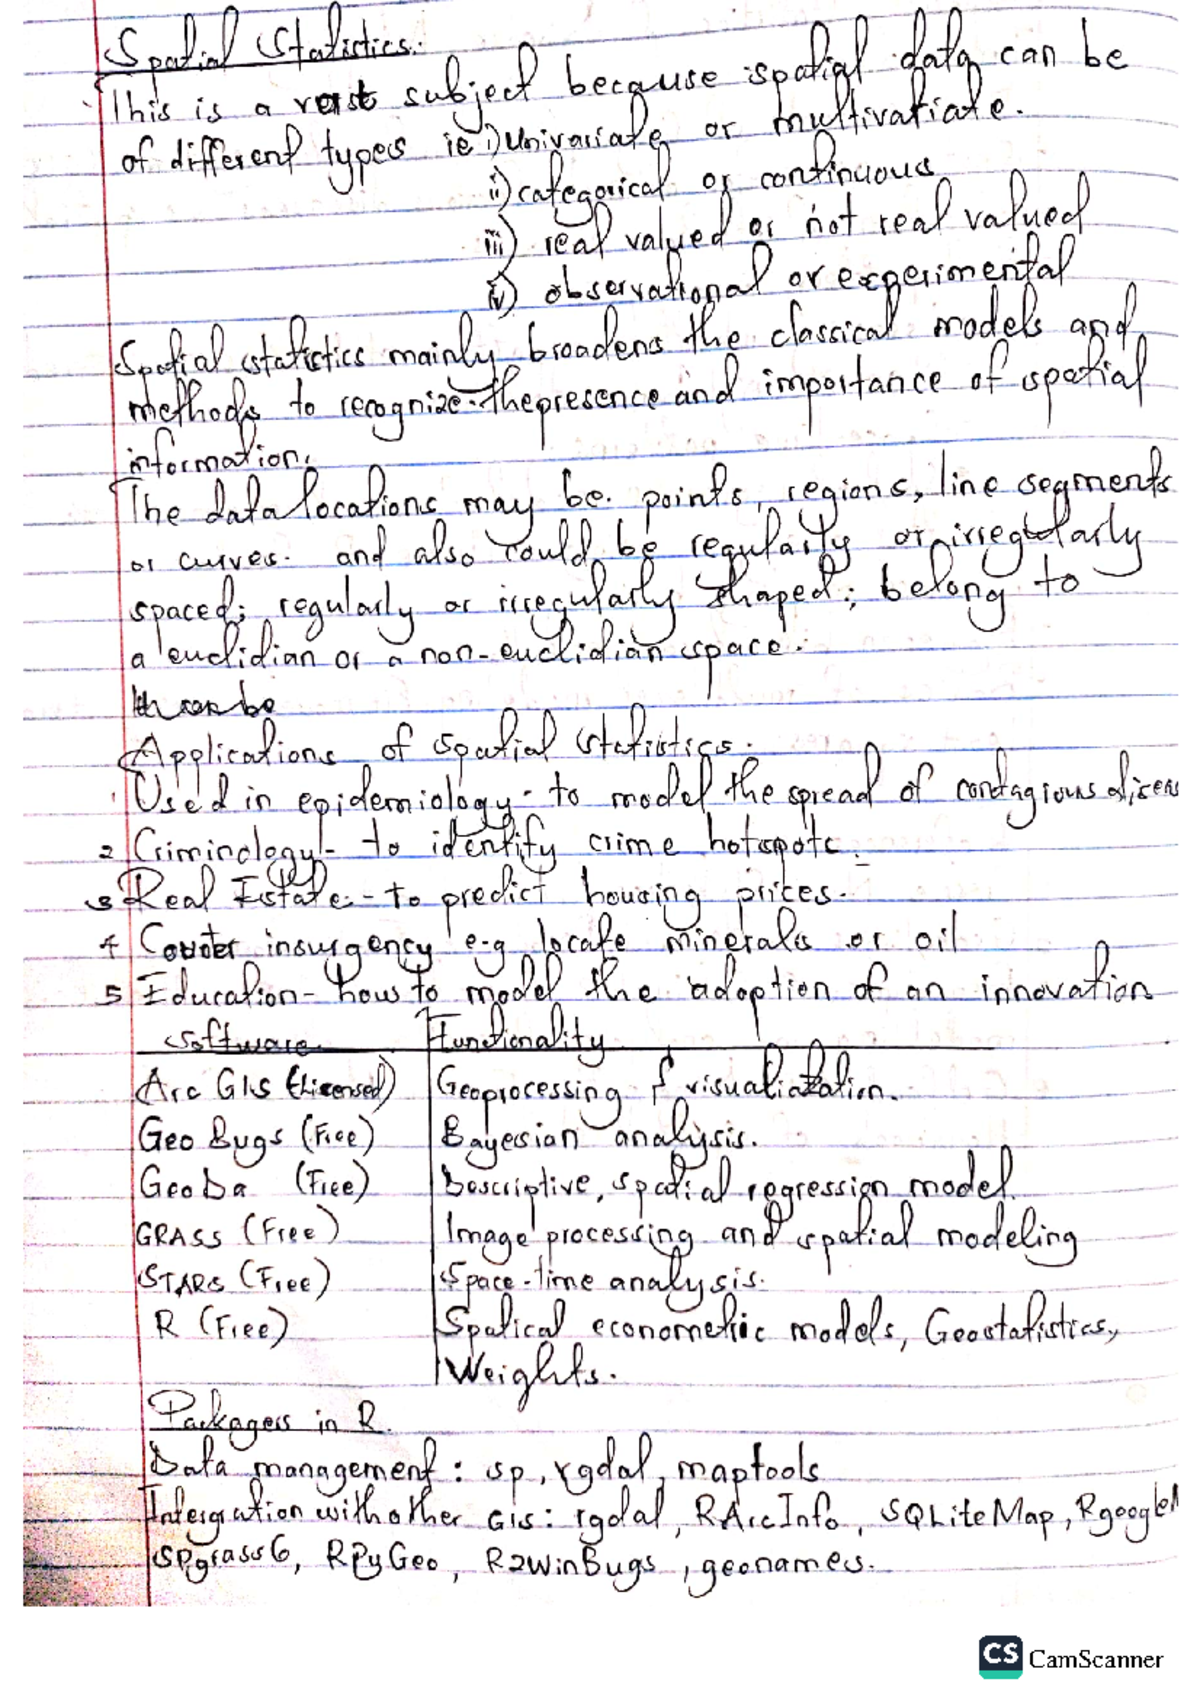 Spatial Statistics.
This is a vast subject because spatial data can be
of different types ie i) Univariate or multivariate.
ii) categorical or continuous
iii) real valued or not real valued
iv) observational or experimental
Spatial statistics mainly broadens the classical models and
methods to recognize the presence and importance of spatial
information.
The data locations may be points, regions, line segments
or curves. and also could be regularly or irregularly
spaced; regularly or irregularly shaped; belong to
a euclidian or a non-euclidian space.
Applications of spatial statistics.
1 Used in epidemiology - to model the spread of contagious diseas
2 Criminology - to identify crime hotspots.
3 Real Estate - to predict housing prices.
4 Counter insurgency e.g locate minerals or oil
5 Education - how to model the adoption of an innovation
Software Functionality
Arc GIS (Licensed) Geoprocessing & visualization.
Geo Bugs (Free) Bayesian analysis.
GeoDa (Free) Descriptive, spatial regression model.
GRASS (Free) Image processing and spatial modeling
STARS (Free) Space-time analysis.
R (Free) Spatical econometric models, Geostatistics,
Weights.
Packages in R.
Data management: sp, rgdal, maptools
Intergration with other GIS: rgdal, RArcInfo, SQLiteMap, Rgoogle
SPgrass6, RPyGeo, R2WinBugs, geonames.
CS CamScanner